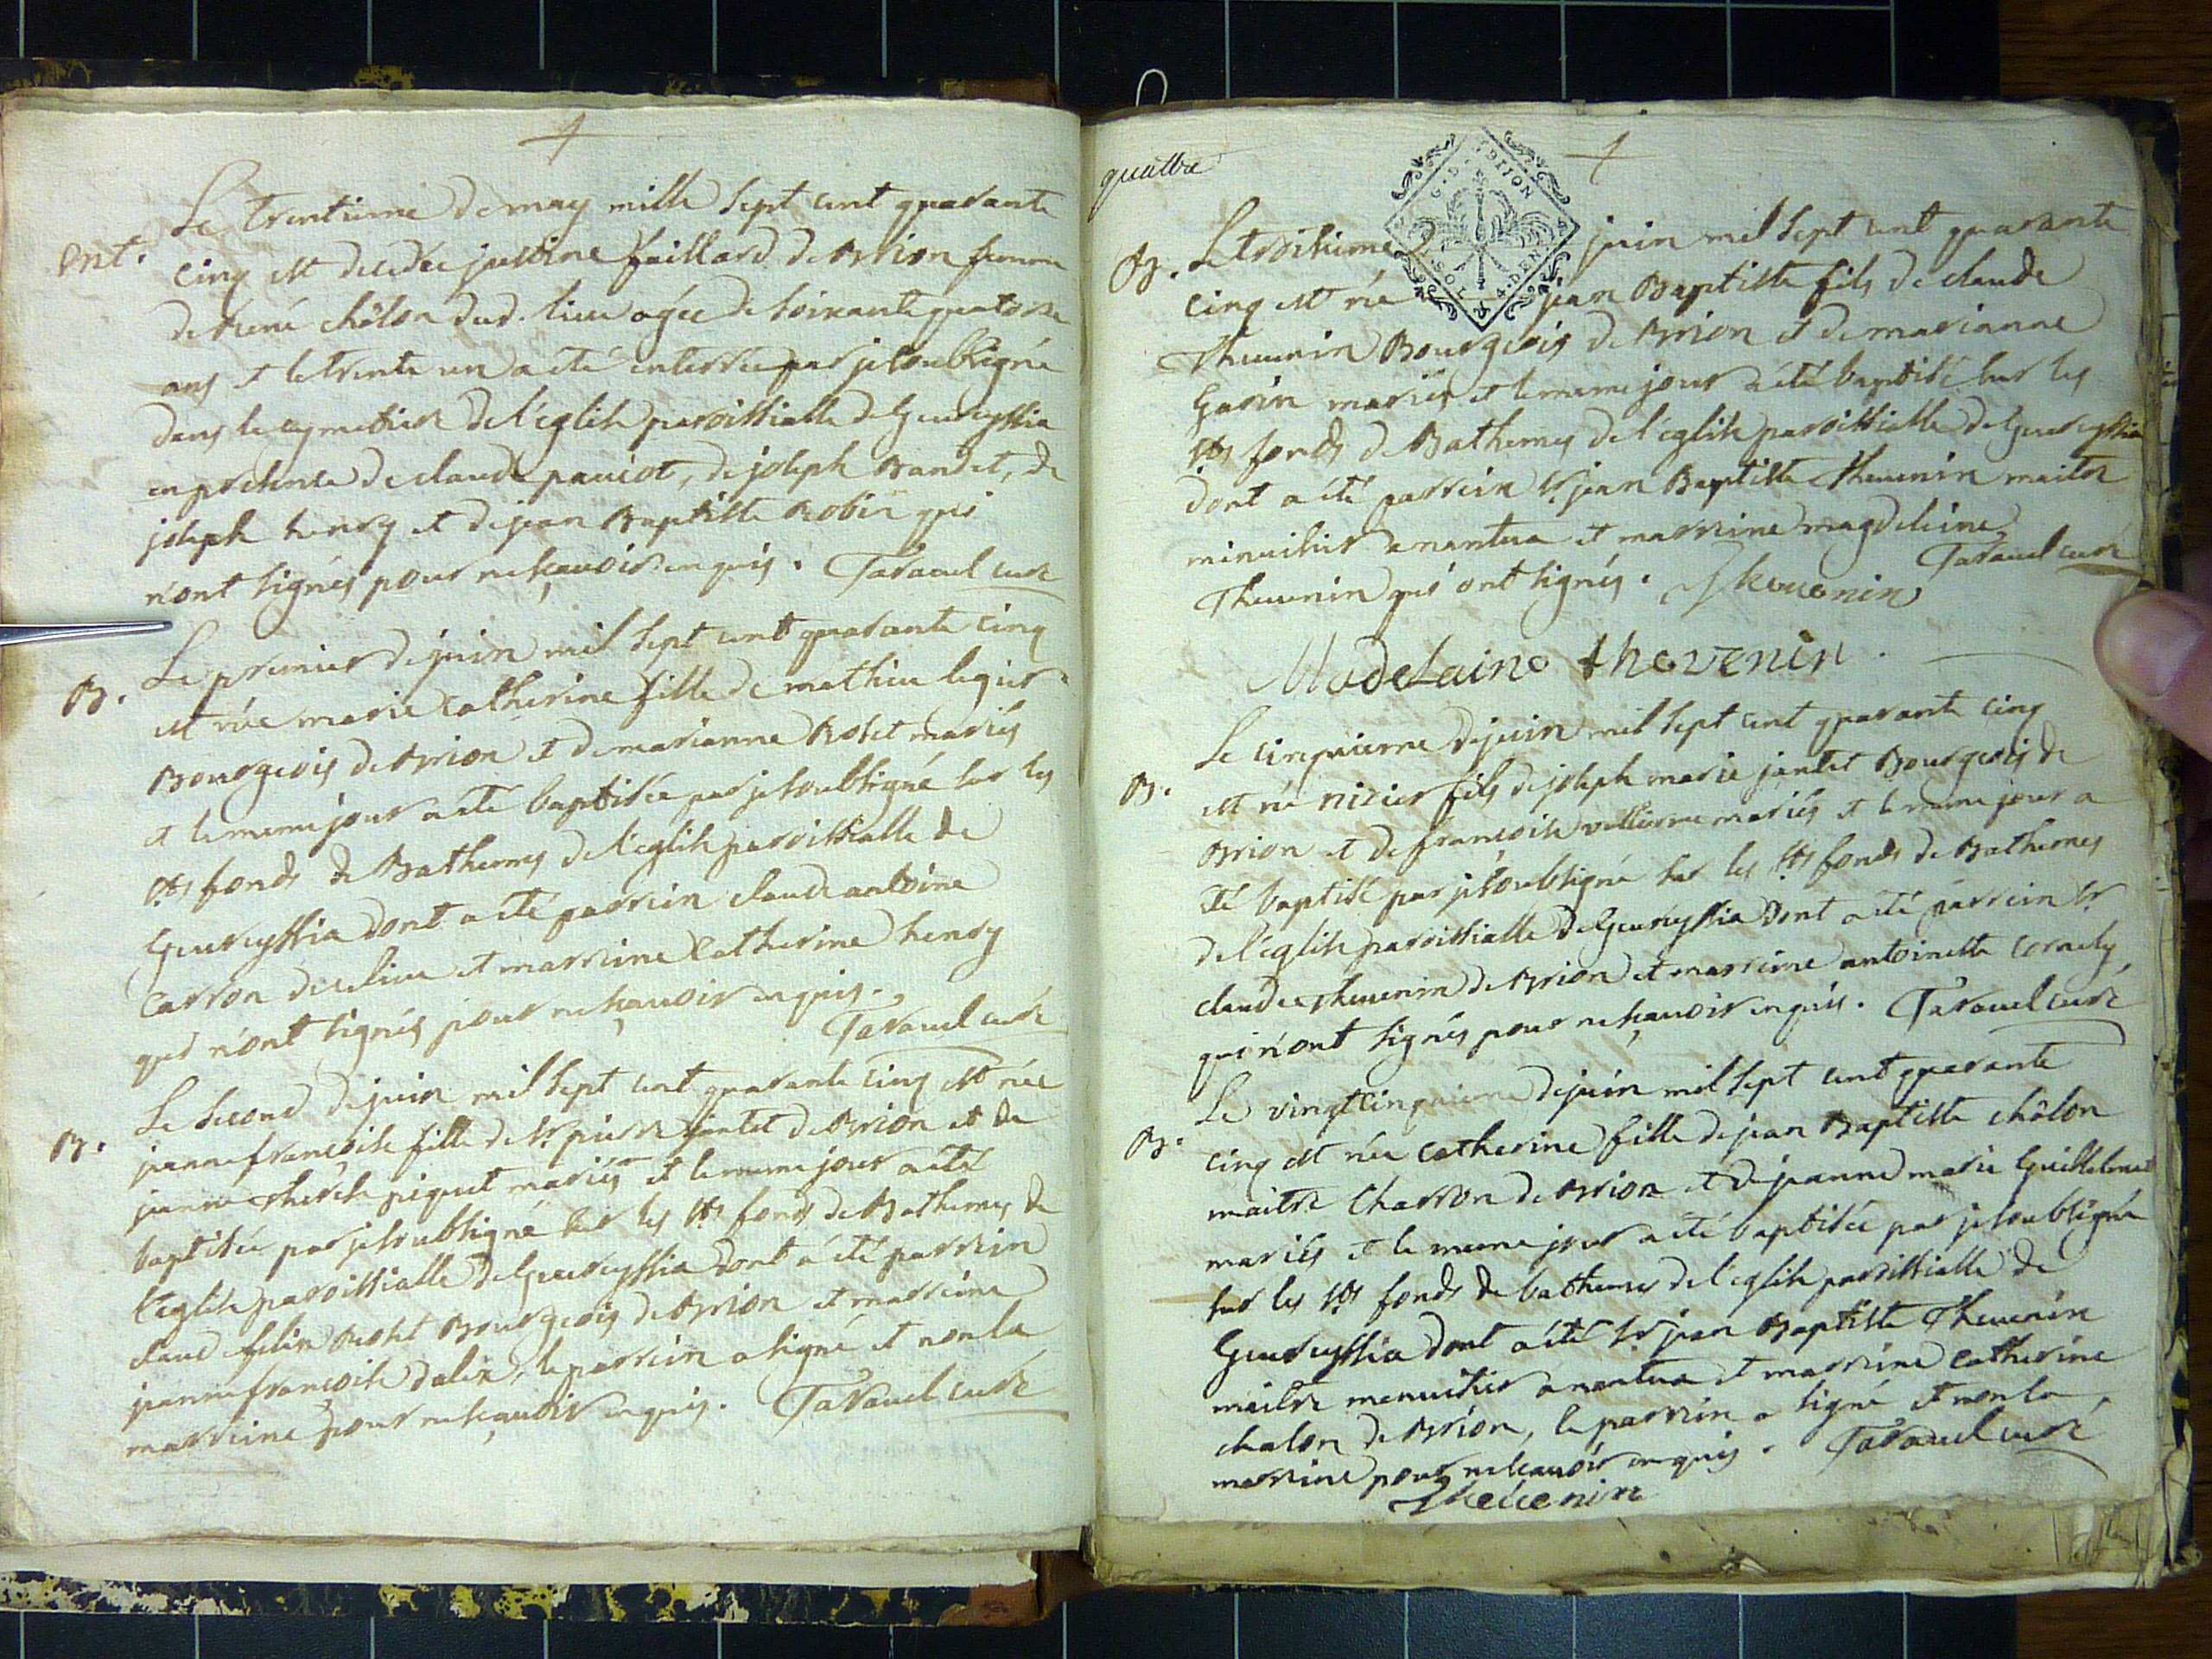 Le trentieme de may mille sept cent quarante
ent.
cinq est decedée justine faillard de Brion femme
de René châlon dud. lieu agée de soixante quatorze
ans et le trente un a eté enterrée par je soubsigné
dans le cymetiere de l'eglise paroissialle de Geureyssia
en presence de claude pauiot, de joseph Bandet, de
joseph henry et de jean Baptiste Robin qui
n'ont signés pour ne sçauoir enquis. Tarauel curé
B.
Le premier de juin mil sept cent quarante cinq
est née marie catherine fille de mathieu
Bourgeois de Brion et de marianne Rolet mariés
et le meme jour a eté baptisée par je soubsigné sur les
sts fonds de Bathemes de l'eglise paroissialle de
Geureyssia dont a eté parrein claude antoine
carron dud. lieu et marreine catherine henry
qui n'ont signés pour ne sçauoir enquis.
Tarauel curé
B.
Le second de juin mil sept cent quarante cinq est née
jeanne françoise fille de sr. pierre jantet de Brion et de
jeanne therese piquet mariés et le meme jour a eté
baptisée par je soubsigné sur les sts fonds de Bathemes de
l'eglise paroissialle de Geureyssia dont a eté parrein
claud felix Rolet Bourgeois de Brion et marreine
jeanne françoise dalix, le parrein a signé et non la
marreine pour ne sçauoir enquis. Tarauel curé
quattre
G. D. DIJON
SOL 4 DEN
B.
Le troisieme de juin mil sept cent quarante
cinq est né jean Baptiste fils de claude
Theuenin Bourgeois de Brion et de marianne
Garin mariés et le meme jour a eté baptisé sur les
sts fonds de Bathemes de l'eglise paroissialle de Geureyssia
dont a eté parrein sr. jean Baptiste Theuenin maitre
minuisier a nantua et marreine magdeleine
Theuenin qui ont signés. Theuenin Tarauel curé
Madelaine thevenin.
B.
Le cinquieme de juin mil sept cent quarante cinq
est né nizier fils de joseph marie jantet Bourgeois de
Brion et de françoise mariés et le meme jour a
eté baptisé par je soubsigné sur les sts fonds de Bathemes
de l'eglise paroissialle de Geureyssia dont a eté parrein sr.
claude theuenin de Brion et marreine antoinette cornely
qui n'ont signés pour ne sçauoir enquis. Tarauel curé
B.
Le vingt cinquieme de juin mil sept cent quarante
cinq est née catherine fille de jean Baptiste châlon
maitre charron de Brion et de jeanne marie Guillelmet
mariés et le meme jour a eté baptisée par je soubsigné
sur les sts fonds de bathemes de l'eglise paroissialle de
Geureyssia dont a eté sr. jean Baptiste Theuenin
maitre menuisier a nantua et marreine catherine
chalon de Brion, le parrein a signé et non la
marreine pour ne sçauoir enquis. Tarauel curé
Theuenin